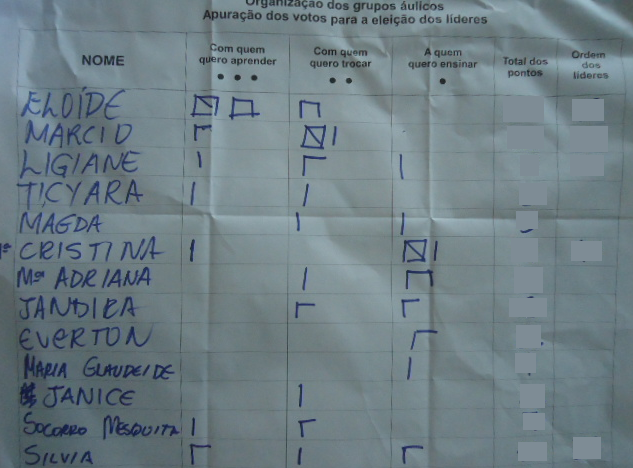 Organização dos grupos áulicos
Apuração dos votos para a eleição dos líderes
NOME Com quem quero aprender • • • Com quem quero trocar • • A quem quero ensinar • Total dos pontos Ordem dos líderes
ELOÍDE
MARCIO
LIGIANE
TICYARA
MAGDA
CRISTINA
Mª ADRIANA
JANDIRA
EVERTON
MARIA GLAUDEIDE
JANICE
SOCORRO MESQUITA
SILVIA